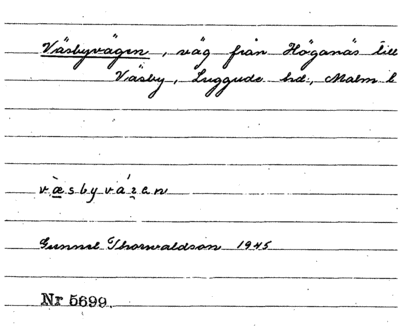 Väsbyvägen, väg från Höganäs till
Väsby, Luggude hd., Malm. l.
væ̀sbyváꝛen
Gunnel Thorwaldson 1945
Nr 5699.